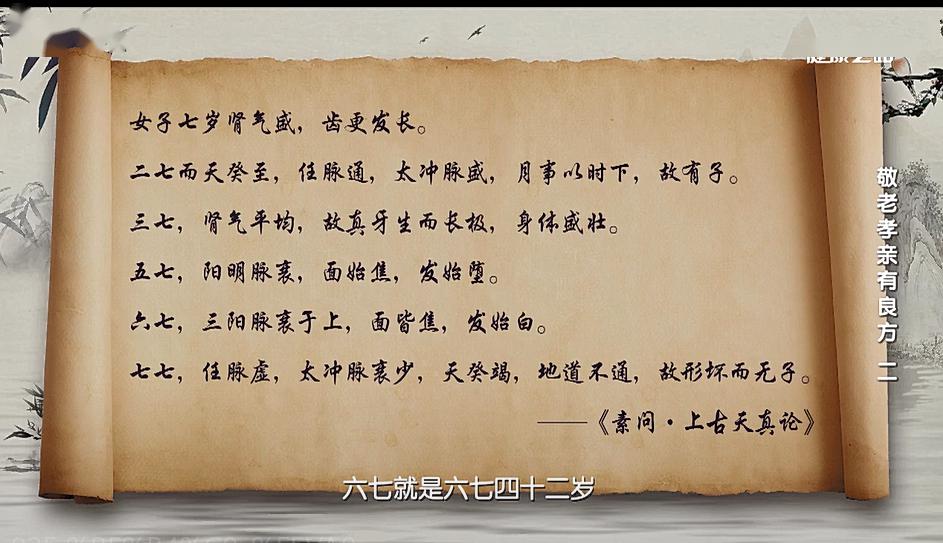 女子七岁肾气盛，齿更发长。
二七而天癸至，任脉通，太冲脉盛，月事以时下，故有子。
三七，肾气平均，故真牙生而长极，身体盛壮。
五七，阳明脉衰，面始焦，发始堕。
六七，三阳脉衰于上，面皆焦，发始白。
七七，任脉虚，太冲脉衰少，天癸竭，地道不通，故形坏而无子。
——《素问·上古天真论》
敬老孝亲有良方 二
六七就是六七四十二岁